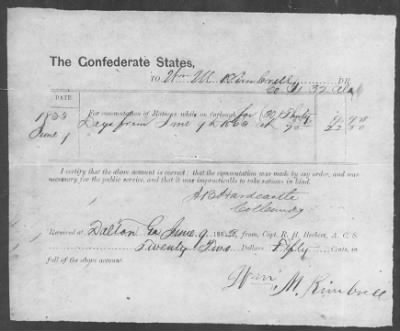 The Confederate States,
TO Wm M. Kimbrell, DR
Co. 32 Ala
DATE
1863 For commutation of Rations while on furlough for (30) Thirty
June 1 Days from June 1st 1863
I certify that the above account is correct; that the commutation was made by my order, and was
necessary for the public service, and that it was impracticable to take rations in kind.
A B Hardcastle
Col Comdg
Received at Dalton Ga June 9 1863, from Capt. R. H. A. C. S.
Twenty Two Dollars Fifty Cents, in
full of the above account.
Wm. M. Kimbrell